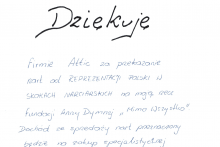 Dziękuję
Firmie Attic za przekazanie
nart od REPREZENTACJI POLSKI W
SKOKACH NARCIARSKICH na moją rzecz
Fundacji Anny Dymnej „Mimo Wszystko"
Dochód ze sprzedaży nart przeznaczony
będzie na zakup specjalistycznej